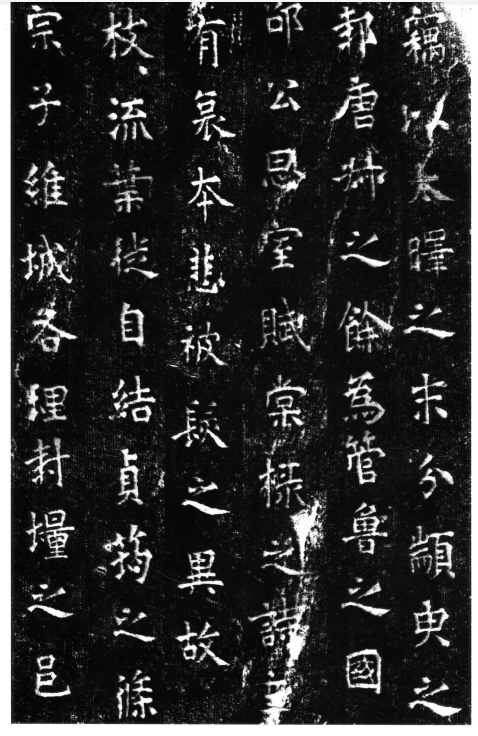 竊以太暭之末分顓臾之
邦唐叔之餘為管魯之國
邵公思室賦棠棣之詩
有哀本悲被髮之異故
枝流葉徙自結貞筠之條
宗子維城各理封壃之邑